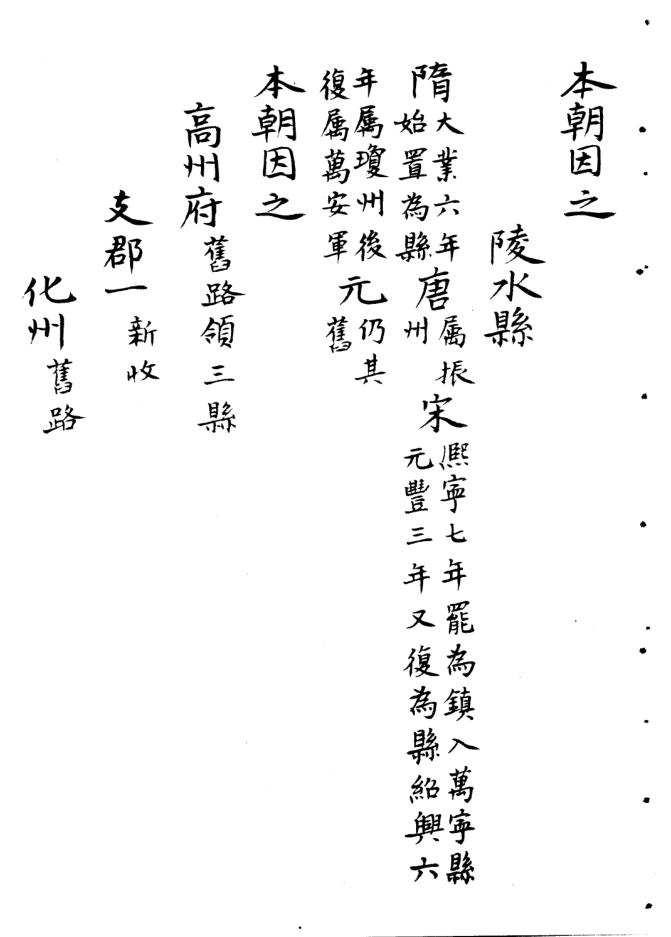 本朝因之
陵水縣
隋大業六年始置為縣唐属振州宋熈寧七年罷為鎮入萬寧縣元豐三年又復為縣紹興六
年属瓊州後復属萬安軍元仍其舊
本朝因之
高州府舊路領三縣
支郡一新收
化州舊路